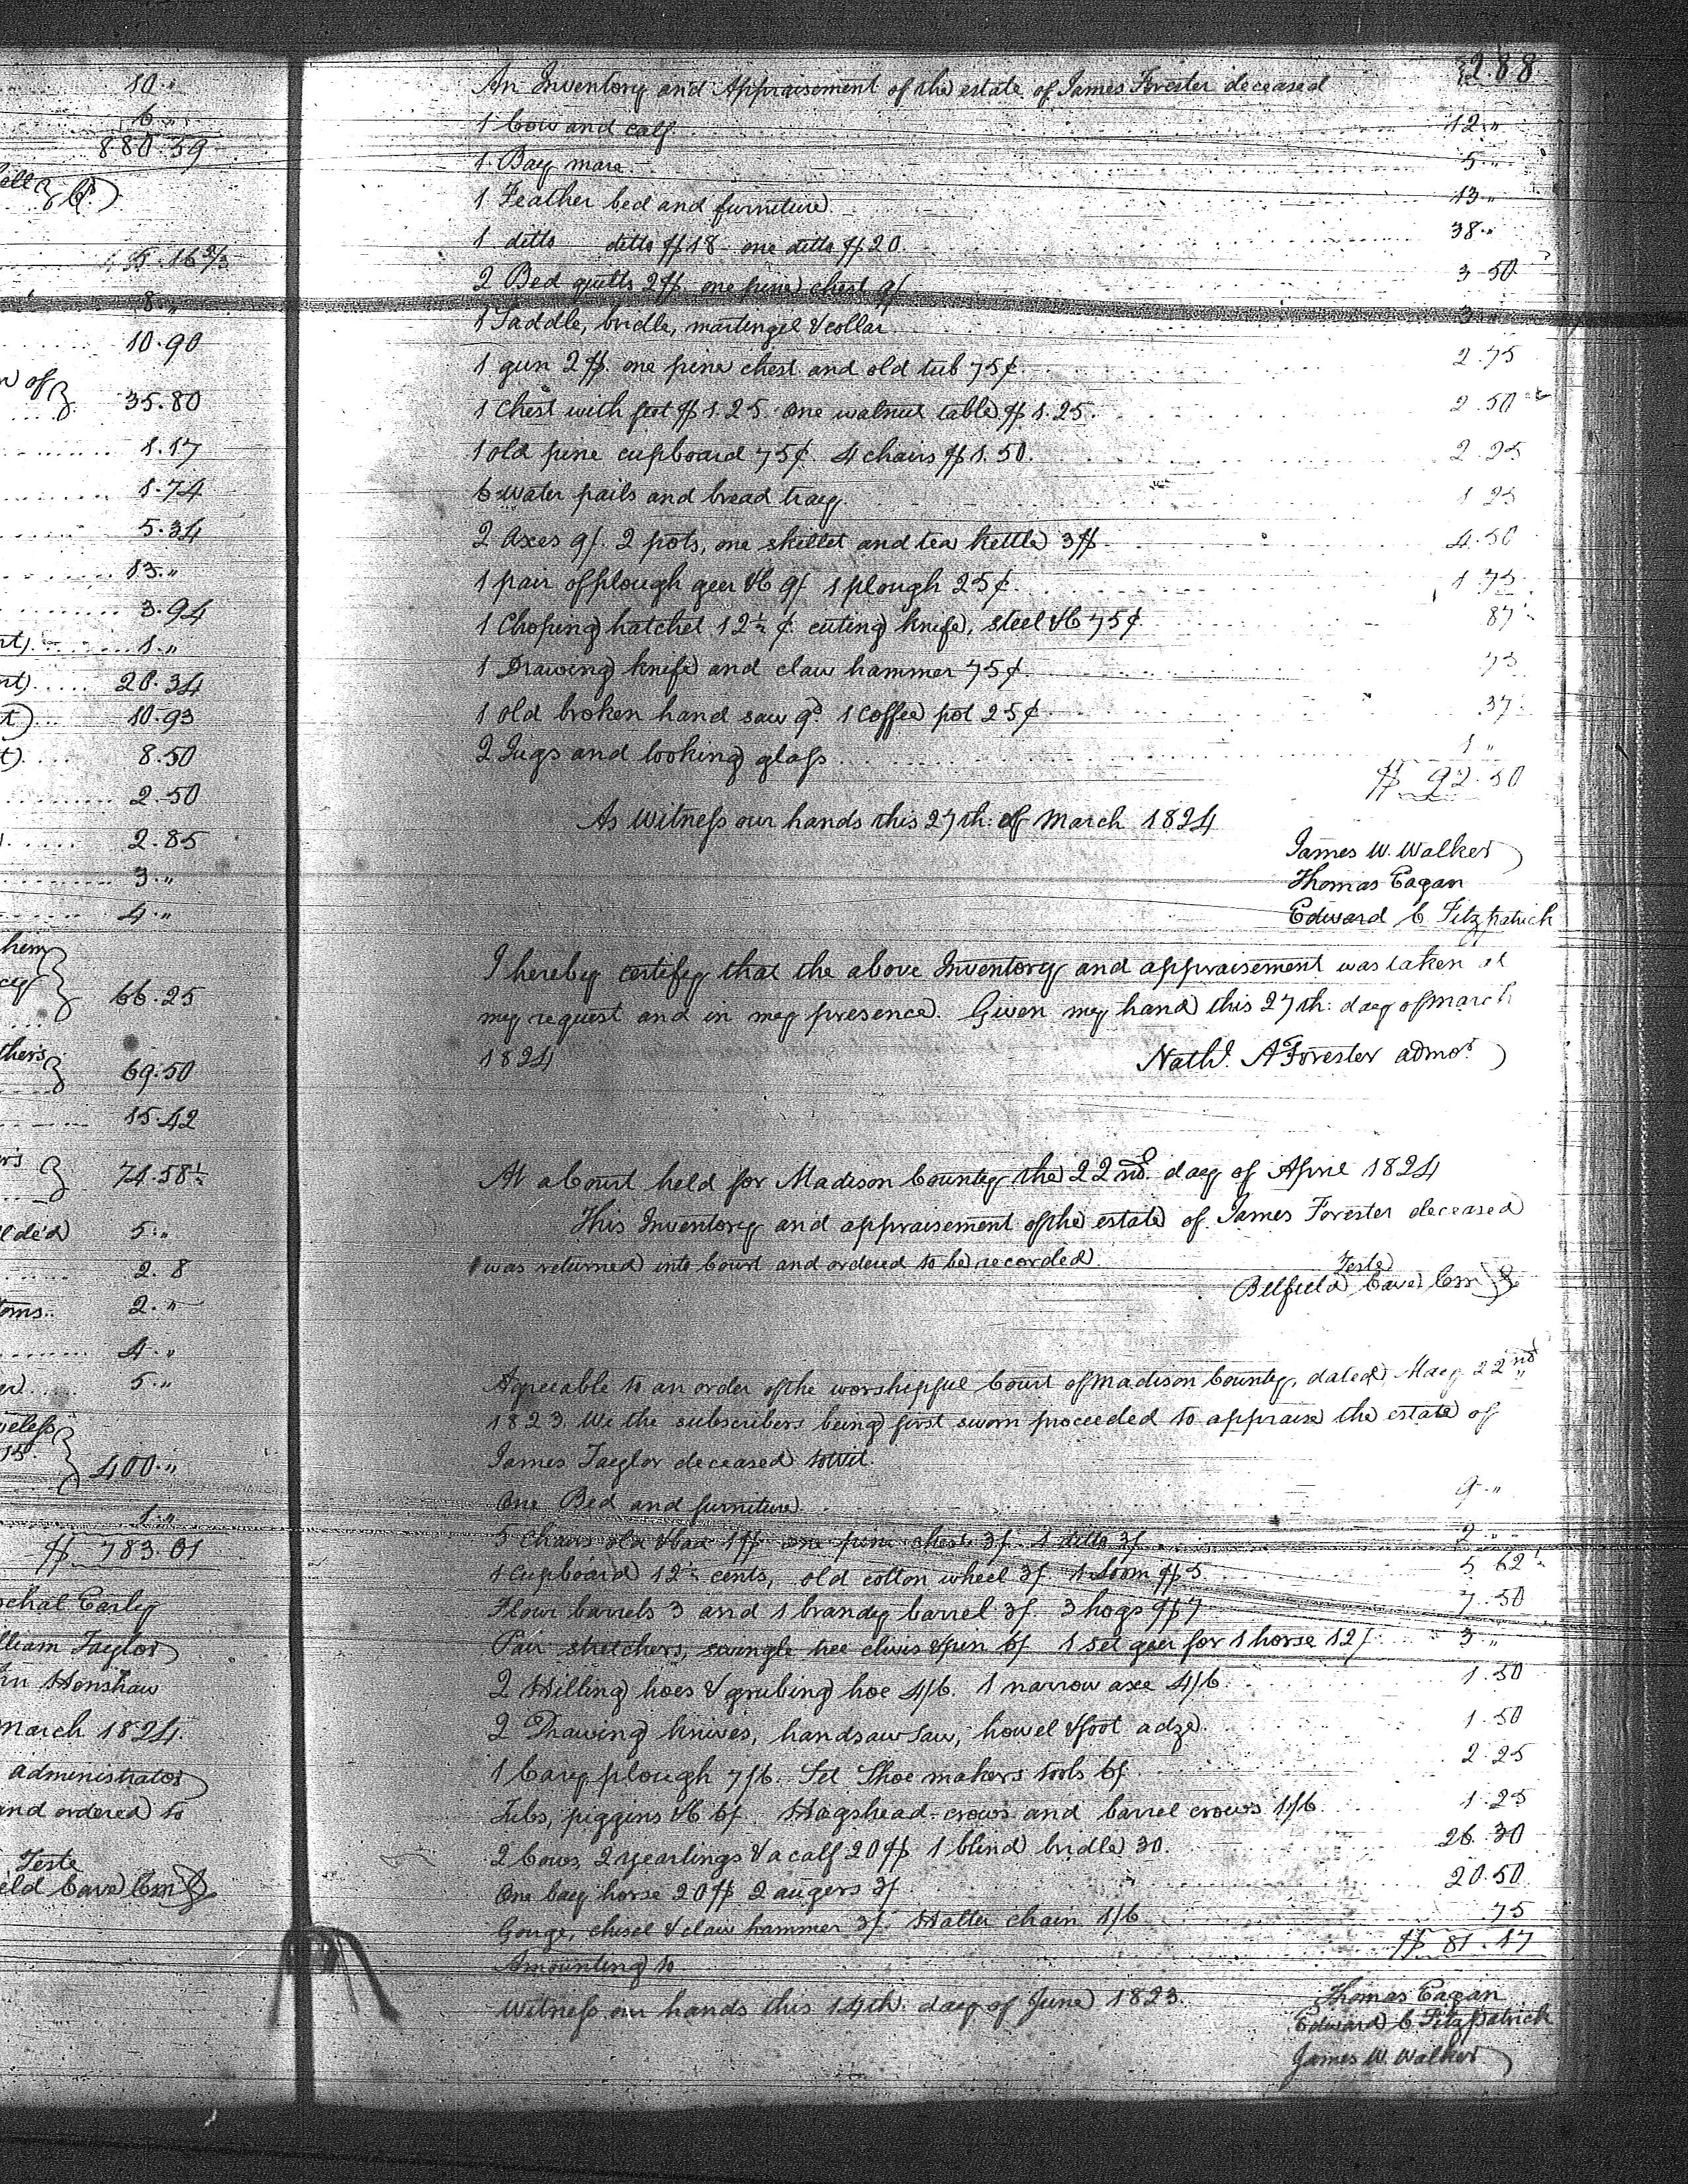 10 "
6 "
880.59
5.16 2/3
8 "
10.90
n of } 35.80
1.17
1.74
5.34
13 "
3.94
nt) 1 "
nt) 20.34
t) 10.93
t) 8.50
2.50
2.85
3 "
4 "
hem
66.25
thers
69.50
15.42
74.58½
5 "
2.8
2 "
4 "
5 "
400 "
1 "
$ 783.01
chal Earley
lliam Taylor
in Henshaw
March 1824.
administrator
and ordered to
Teste
eld Cave
288
An Inventory and Appraisement of the estate of James Forester deceased
1 Cow and calf 12 "
1 Bay mare 5 "
1 Feather bed and furniture 13 "
1 ditto ditto $18 one ditto $20 38 "
2 Bed quilts 2$ one pine chest 9/ 3 50
1 Saddle, bridle, martingel & collar 3 "
1 gun 2$. one pine chest and old tub 75¢ 2.75
1 Chest with feet $1.25. one walnut table $1.25. 2.50
1 old pine cupboard 75¢. 4 chairs $1.50. 2.25
6 water pails and bread tray 1 25
2 axes 9/. 2 pots, one skillet and tea kettle 3$ 4.50
1 pair of plough geer &c 9/ 1 plough 25¢. 1 75
1 Choping hatchet 12½ ¢. cuting knife, steel &c 75¢ 87½
1 Drawing knife and claw hammer 75¢ 75
1 old broken hand saw 9d. 1 Coffee pot 25¢ 37½
2 Jugs and looking glass 1 "
$ 92.50
As Witness our hands this 27th: of March 1824
James W. Walker
Thomas Eagan
Edward C Fitzpatrick
I hereby certify that the above Inventory and appraisement was taken at
my request and in my presence. Given my hand this 27th: day of March
1824 Nathl. A Forester admor.
At a Court held for Madison County the 22nd. day of April 1824
This Inventory and appraisement of the estate of James Forester deceased
was returned into Court and ordered to be recorded.
Teste
Belfield Cave
Agreeable to an order of the worshipful Court of Madison County, dated May 22nd
1823 We the subscribers being first sworn proceeded to appraise the estate of
James Taylor deceased towit.
One Bed and furniture 9 "
5 Chairs old & bad 1$ one pine chest 3/. 1 ditto 3/ 2 "
1 Cupboard 12½ cents, old cotton wheel 3/ 1 Loom $5. 5 62½
Flour barrels 3 and 1 brandy barrel 3/. 3 hogs $7 7.50
Pair stretchers, swingle tree clivis & pin 6/ 1 set geer for 1 horse 12/ 3 "
2 Hilling hoes & grubing hoe 4/6. 1 narrow axe 4/6 1.50
2 Drawing knives, handsaw saw, howel & foot adze 1.50
1 Cary plough 7/6. Set Shoemakers tools 6/ 2 25
Tubs, piggins &c 6/. Hogshead crows and barrel crows 1/6 1.25
2 Cows, 2 yearlings & a calf 20$ 1 blind bridle 30. 26.30
One bay horse 20$ 2 augers 3/ 20.50
Gouge, chisel & claw hammer 3/. Halter chain 1/6 .75
Amounting to $ 81.17
Witness our hands this 14th. day of June 1823.
Thomas Eagan
Edward C Fitzpatrick
James W. Walker